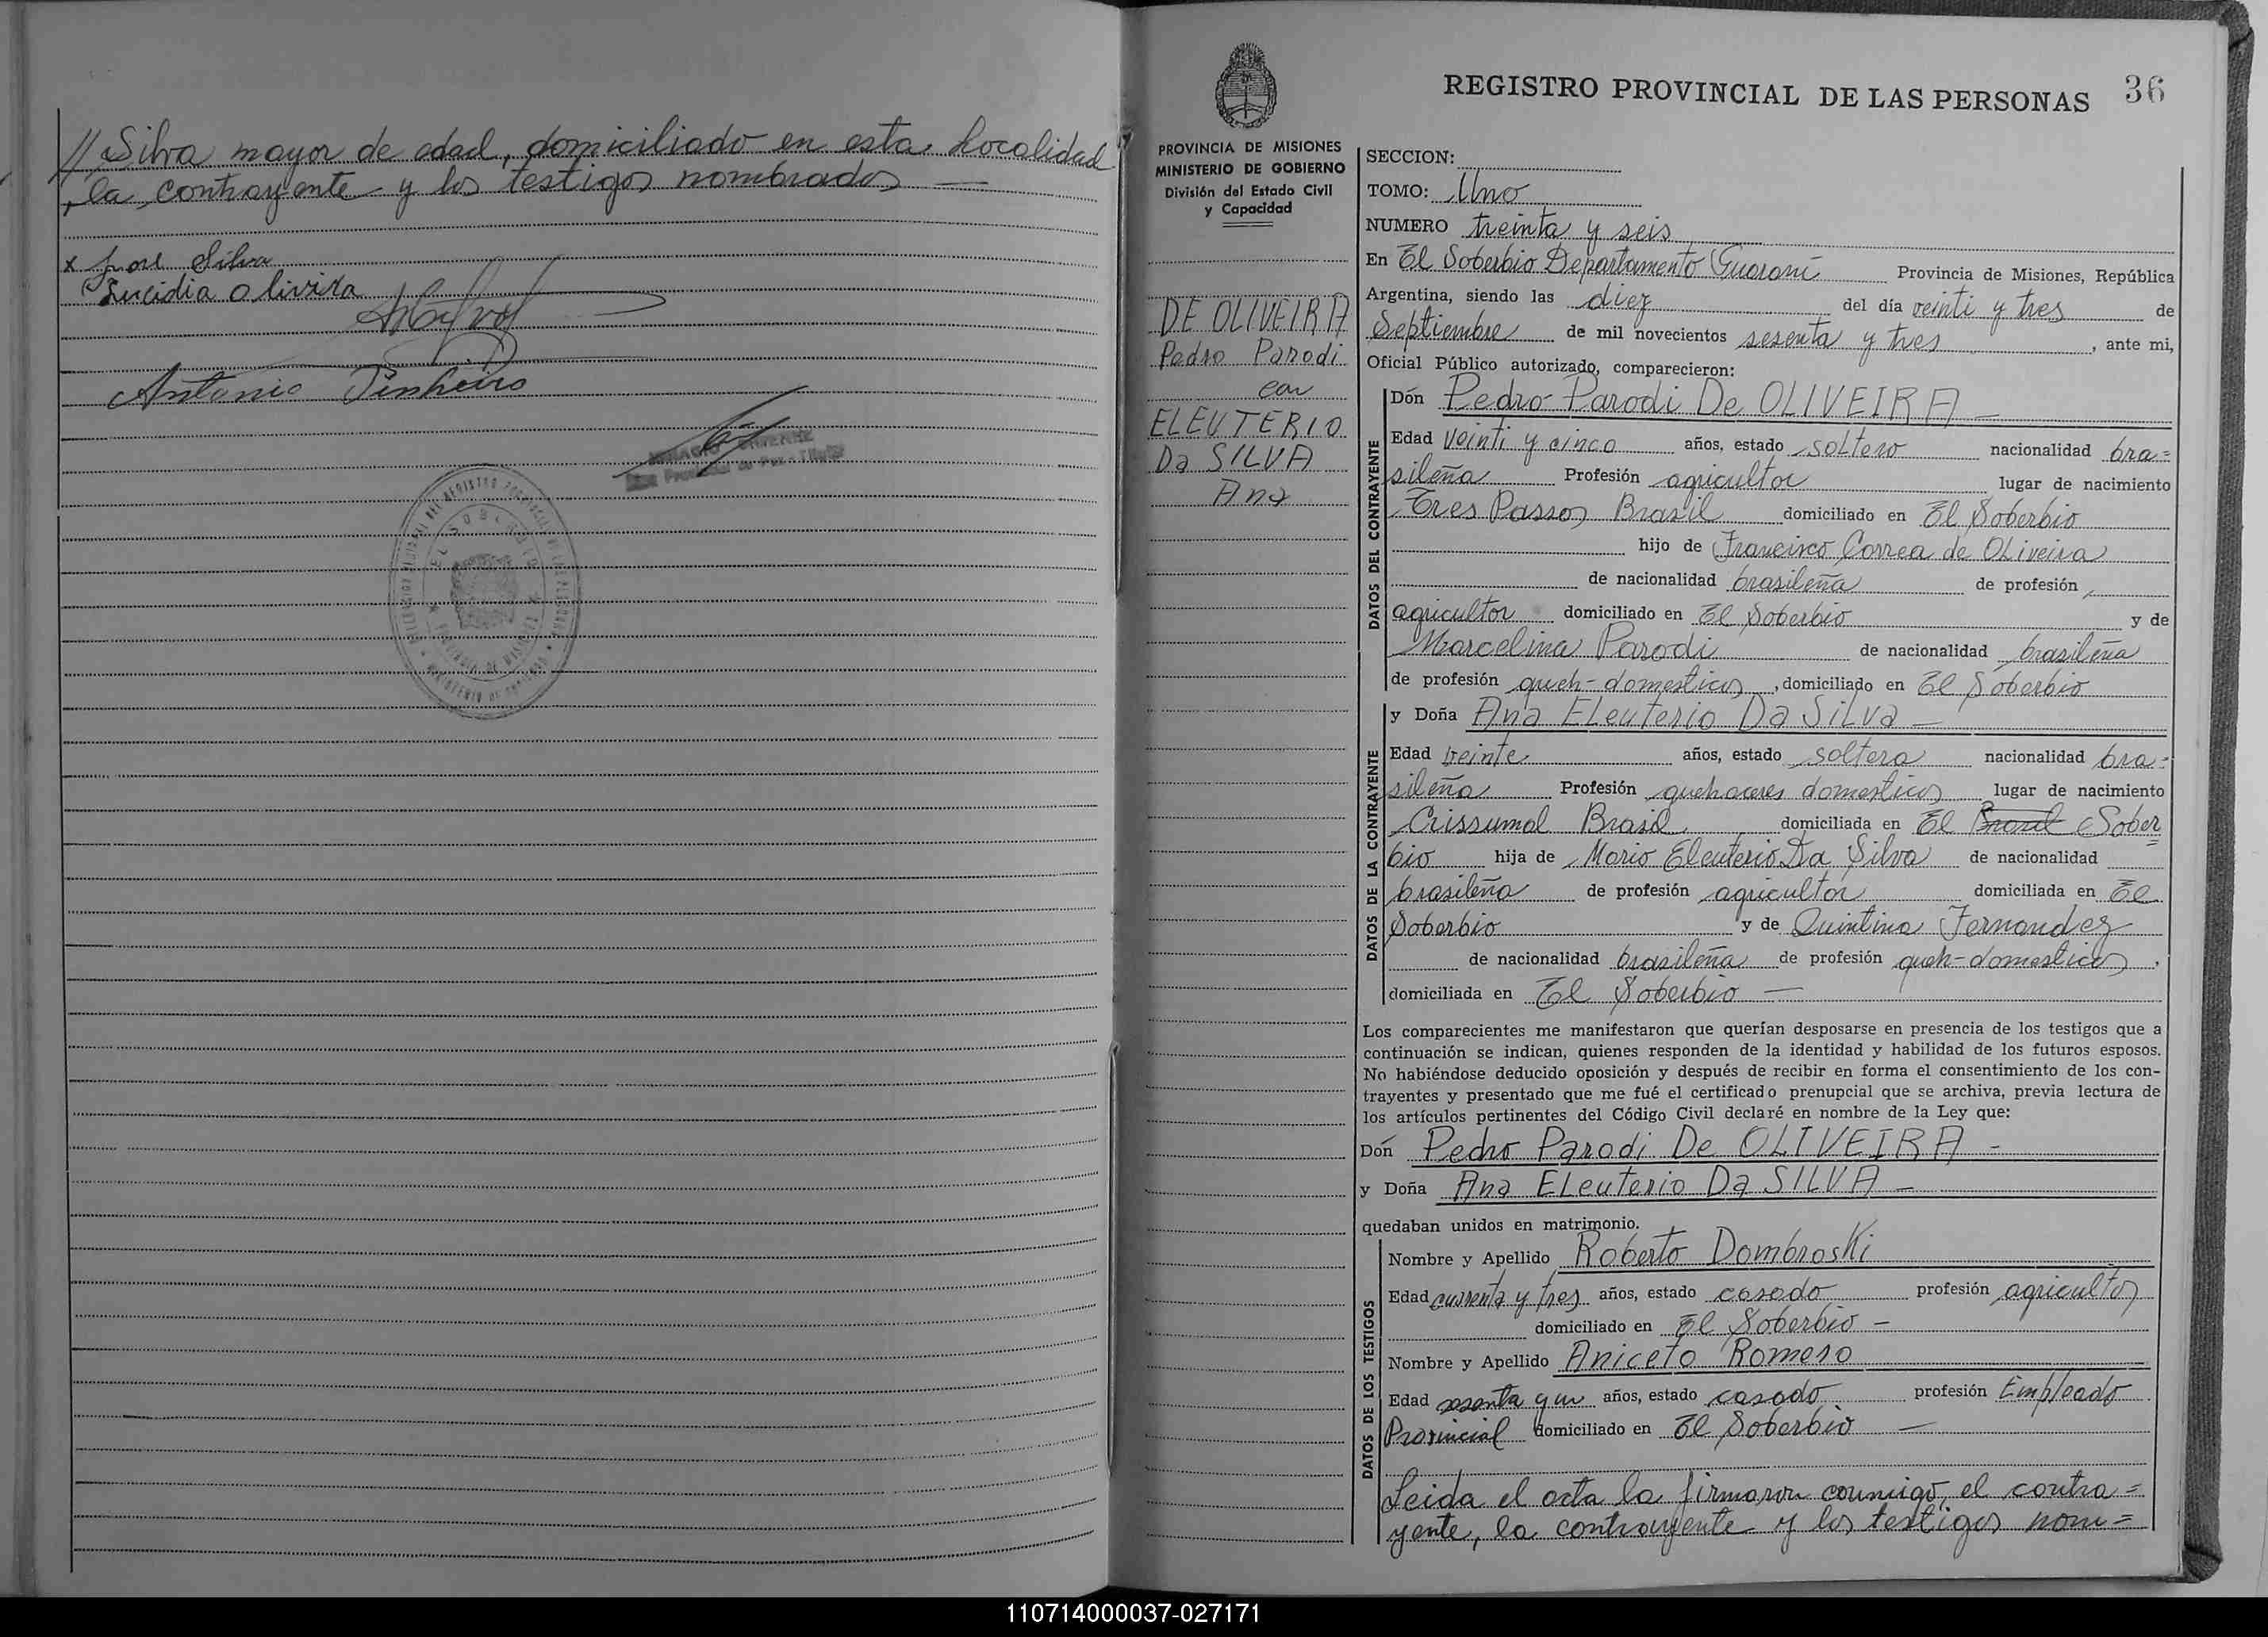 // Silva mayor de edad, domiciliado en esta Localidad
la contrayente y los testigos nombrados —
x José Silva
Lucidia olivira
Antonio Pinheiro
EL SOBERBIO
PROVINCIA DE MISIONES
REGISTRO PROVINCIAL DE LAS PERSONAS
36
PROVINCIA DE MISIONES
MINISTERIO DE GOBIERNO
División del Estado Civil
y Capacidad
DE OLIVEIRA
Pedro Parodi
con
ELEUTERIO
Da SILVA
Ana
SECCION:
TOMO: Uno
NUMERO treinta y seis
En El Soberbio Departamento Guaraní Provincia de Misiones, República
Argentina, siendo las diez del día veinti y tres de
Septiembre de mil novecientos sesenta y tres, ante mi,
Oficial Público autorizado, comparecieron:
DATOS DEL CONTRAYENTE
Dón Pedro Parodi De OLIVEIRA —
Edad veinti y cinco años, estado soltero nacionalidad bra=
sileña Profesión agricultor lugar de nacimiento
Tres Passos Brasil domiciliado en El Soberbio
hijo de Francisco Correa de Oliveira
de nacionalidad brasileña de profesión
agricultor domiciliado en El Soberbio y de
Marcelina Parodi de nacionalidad brasileña
de profesión queh-domesticos, domiciliado en El Soberbio
DATOS DE LA CONTRAYENTE
y Doña Ana Eleuterio Da Silva —
Edad veinte años, estado soltera nacionalidad bra=
sileña Profesión quehaceres domesticos lugar de nacimiento
Crissumal Brasil domiciliada en El Brasil Sober
bio hija de Mario Eleuterio Da Silva de nacionalidad
brasileña de profesión agricultor domiciliada en El
Soberbio y de Quintina Fernandez
de nacionalidad brasileña de profesión queh-domesticos,
domiciliada en El Soberbio —
Los comparecientes me manifestaron que querían desposarse en presencia de los testigos que a
continuación se indican, quienes responden de la identidad y habilidad de los futuros esposos.
No habiéndose deducido oposición y después de recibir en forma el consentimiento de los con-
trayentes y presentado que me fué el certificado prenupcial que se archiva, previa lectura de
los artículos pertinentes del Código Civil declaré en nombre de la Ley que:
Dón Pedro Parodi De OLIVEIRA -
y Doña Ana Eleuterio Da SILVA —
quedaban unidos en matrimonio.
DATOS DE LOS TESTIGOS
Nombre y Apellido Roberto Dombroski
Edad cuarenta y tres años, estado casado profesión agricultor
domiciliado en El Soberbio —
Nombre y Apellido Aniceto Romero
Edad sesenta y un años, estado casado profesión Empleado
Provincial domiciliado en El Soberbio —
Leida el acta la firmaron conmigo, el contra=
yente, la contrayente y los testigos nom=
110714000037-027171